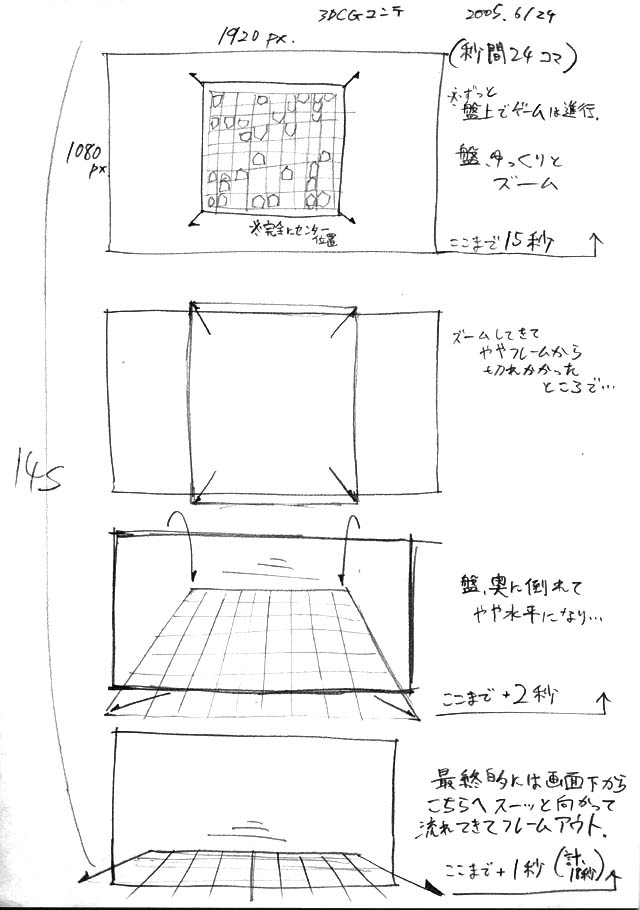 3DCGコンテ 2005. 6/24
1920 px.
(秒間24コマ)
※ずっと
盤上でゲームは進行.
1080
px
盤、ゆっくりと
ズーム
※完全にセンター
位置
ここまで 15秒
ズームしてきて
ややフレームから
切れかかった
ところで…
14S
盤、奥に倒れて
やや水平になり…
ここまで +2秒
最終的には画面下から
こちらへスーッと向かって
流れてきてフレームアウト.
ここまで +1秒 (計、
18秒)